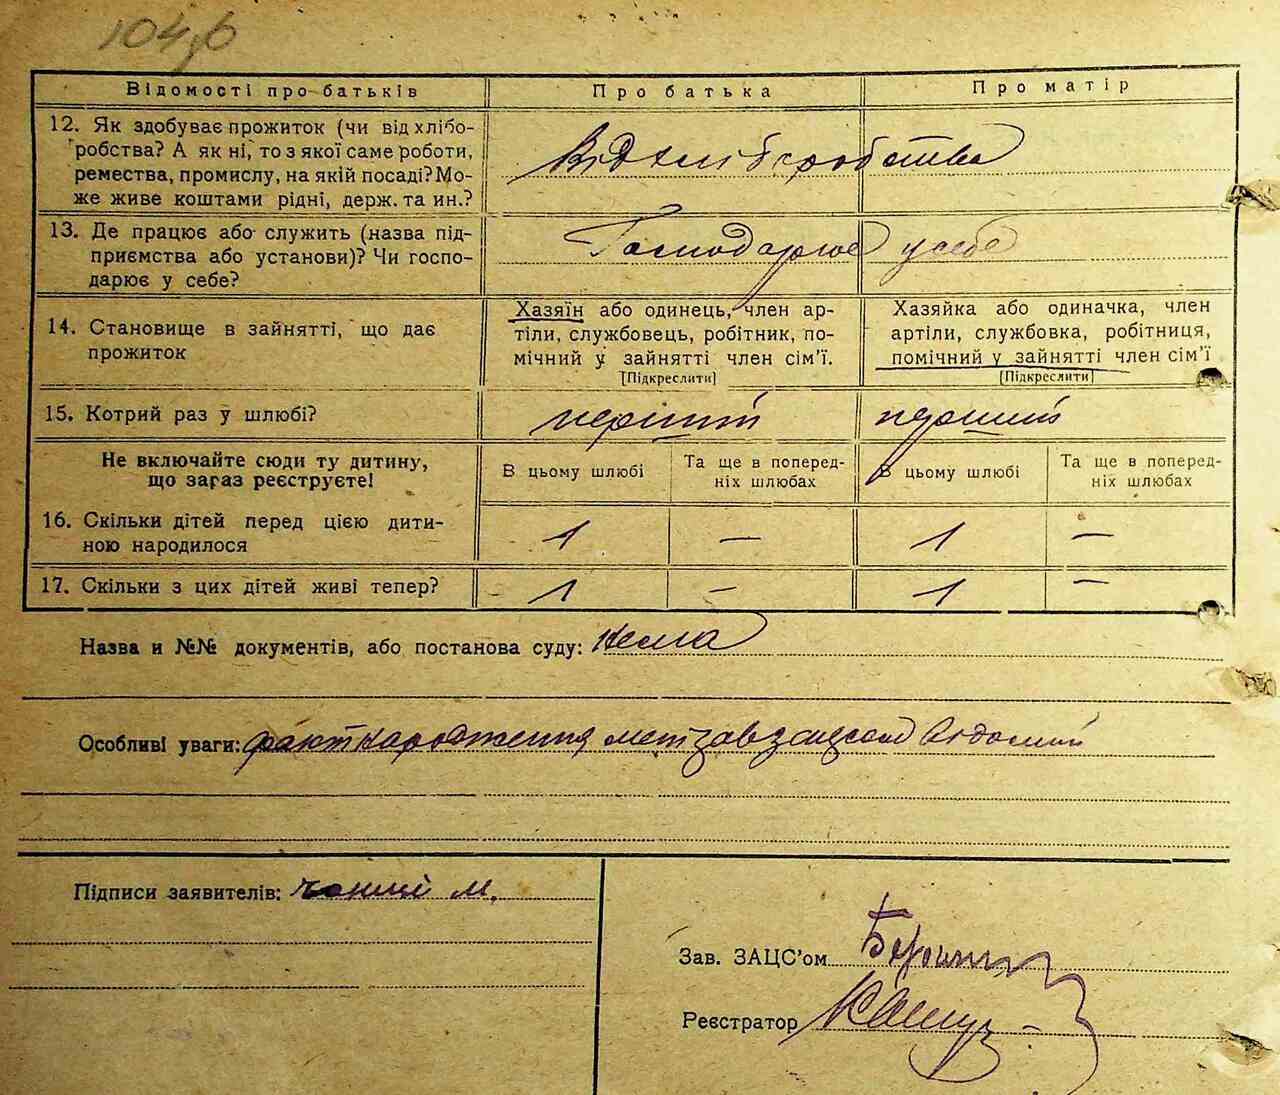 104зб
Відомості про батьків
Про батька
Про матір
12. Як здобуває прожиток (чи від хлібо-
робства? А як ні, то з якої саме роботи,
ремества, промислу, на якій посаді? Мо-
же живе коштами рідні, держ. та ин.?
Від хліборобства
13. Де працює або служить (назва під-
приємства або установи)? Чи госпо-
дарює у себе?
Господарює у себе
14. Становище в зайнятті, що дає
прожиток
Хазяїн або одинець, член ар-
тіли, службовець, робітник, по-
мічний у зайнятті член сім'ї.
[Підкреслити]
Хазяйка або одиначка, член
артіли, службовка, робітниця,
помічний у зайнятті член сім'ї
[Підкреслити]
15. Котрий раз у шлюбі?
перший
перший
Не включайте сюди ту дитину,
що зараз реєструєте!
В цьому шлюбі
Та ще в поперед-
ніх шлюбах
В цьому шлюбі
Та ще в поперед-
ніх шлюбах
16. Скільки дітей перед цією дити-
ною народилося
1 — 1 —
17. Скільки з цих дітей живі тепер?
1 — 1 —
Назва и №№ документів, або постанова суду: Нема
Особливі уваги: факт народження
Підписи заявителів: М.
Зав. ЗАЦС'ом
Реєстратор